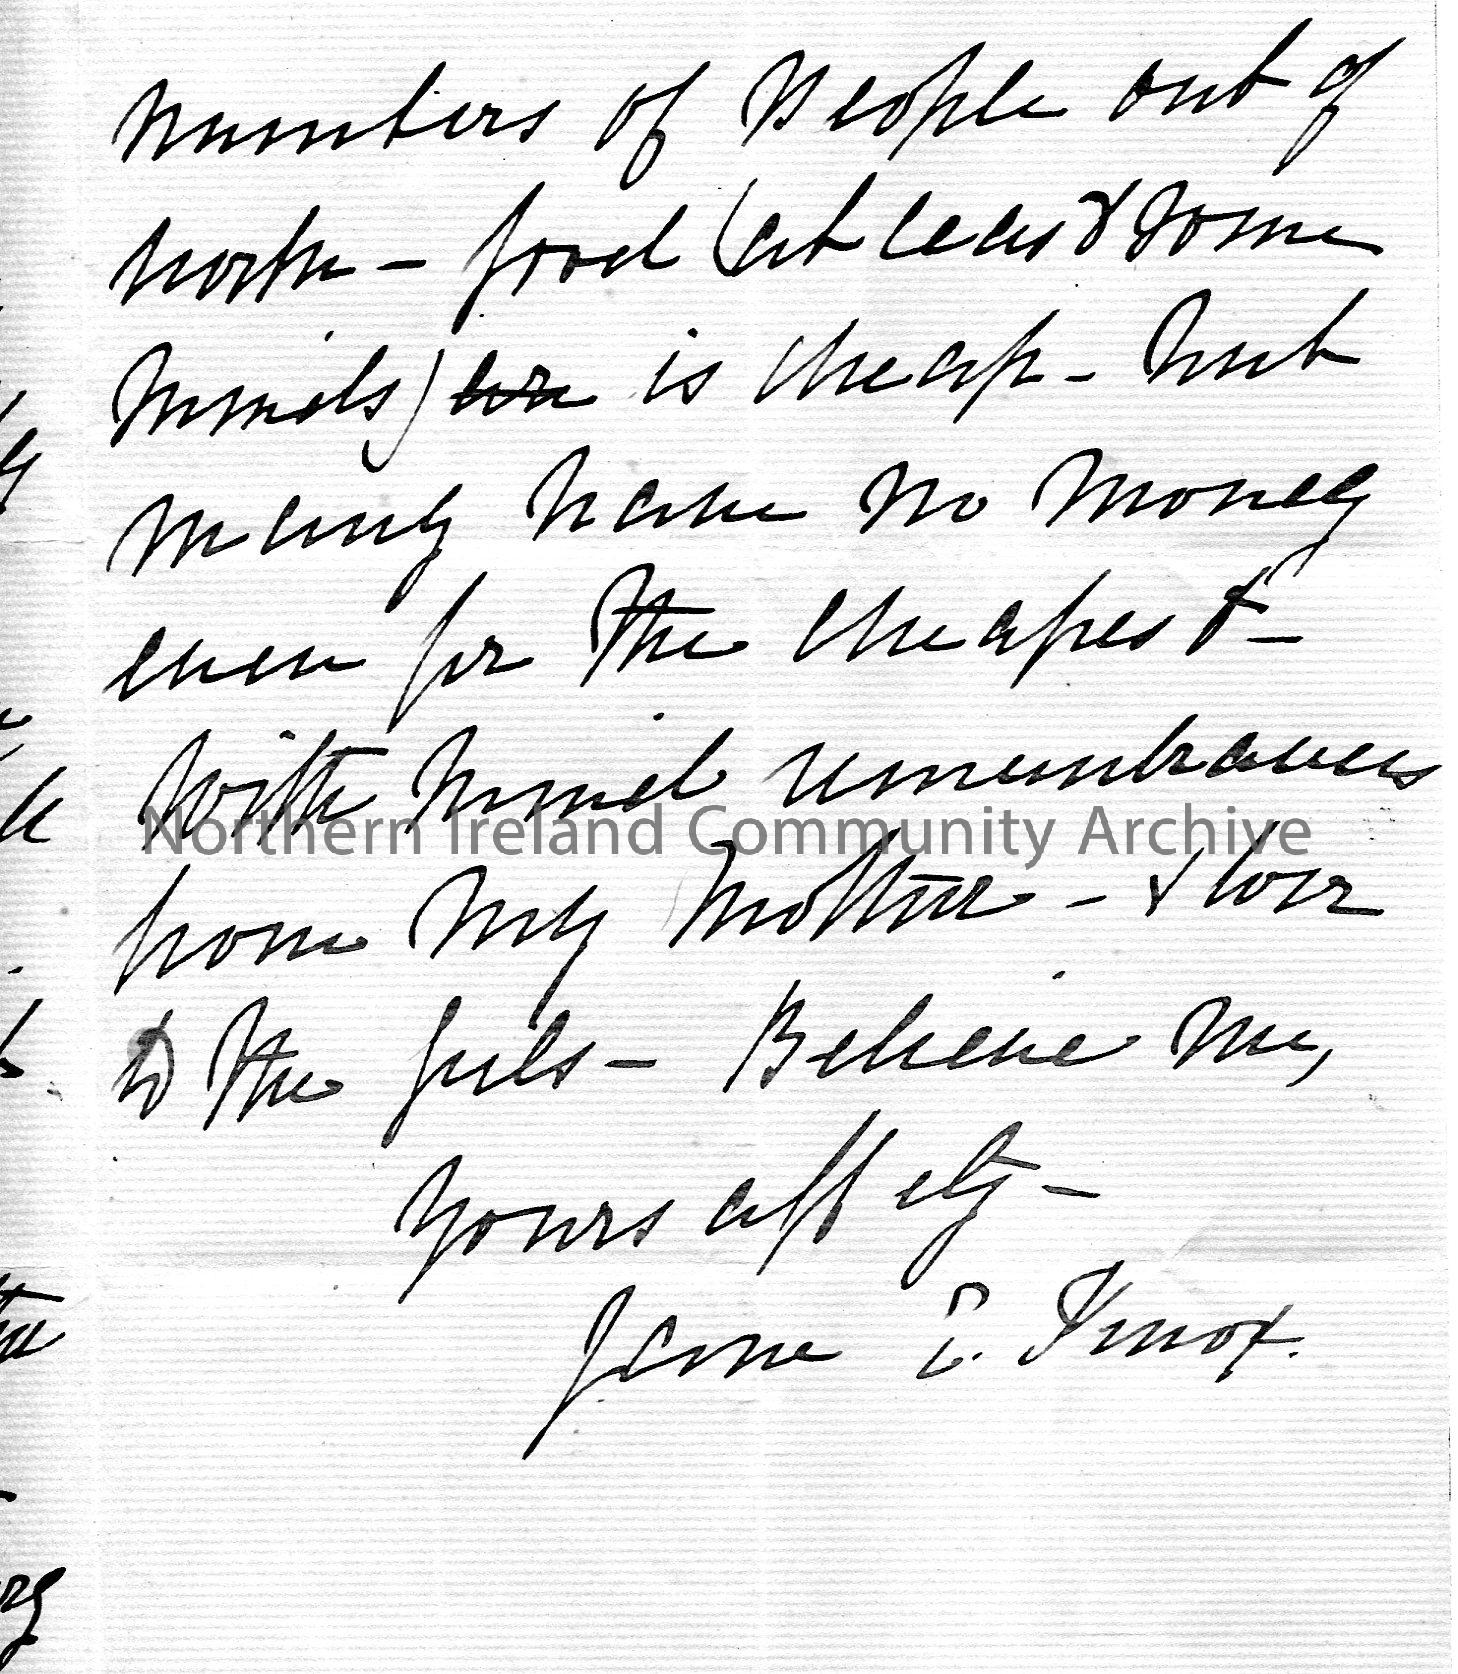 numbers of People out of
work – food (at least some
kinds) are is cheap – but
many have no money
even for the cheapest –
With kind remembrances
from my Mother – & love
to the Girls – Believe me,
Yours affely –
Jane E. Knox.
Northern Ireland Community Archive